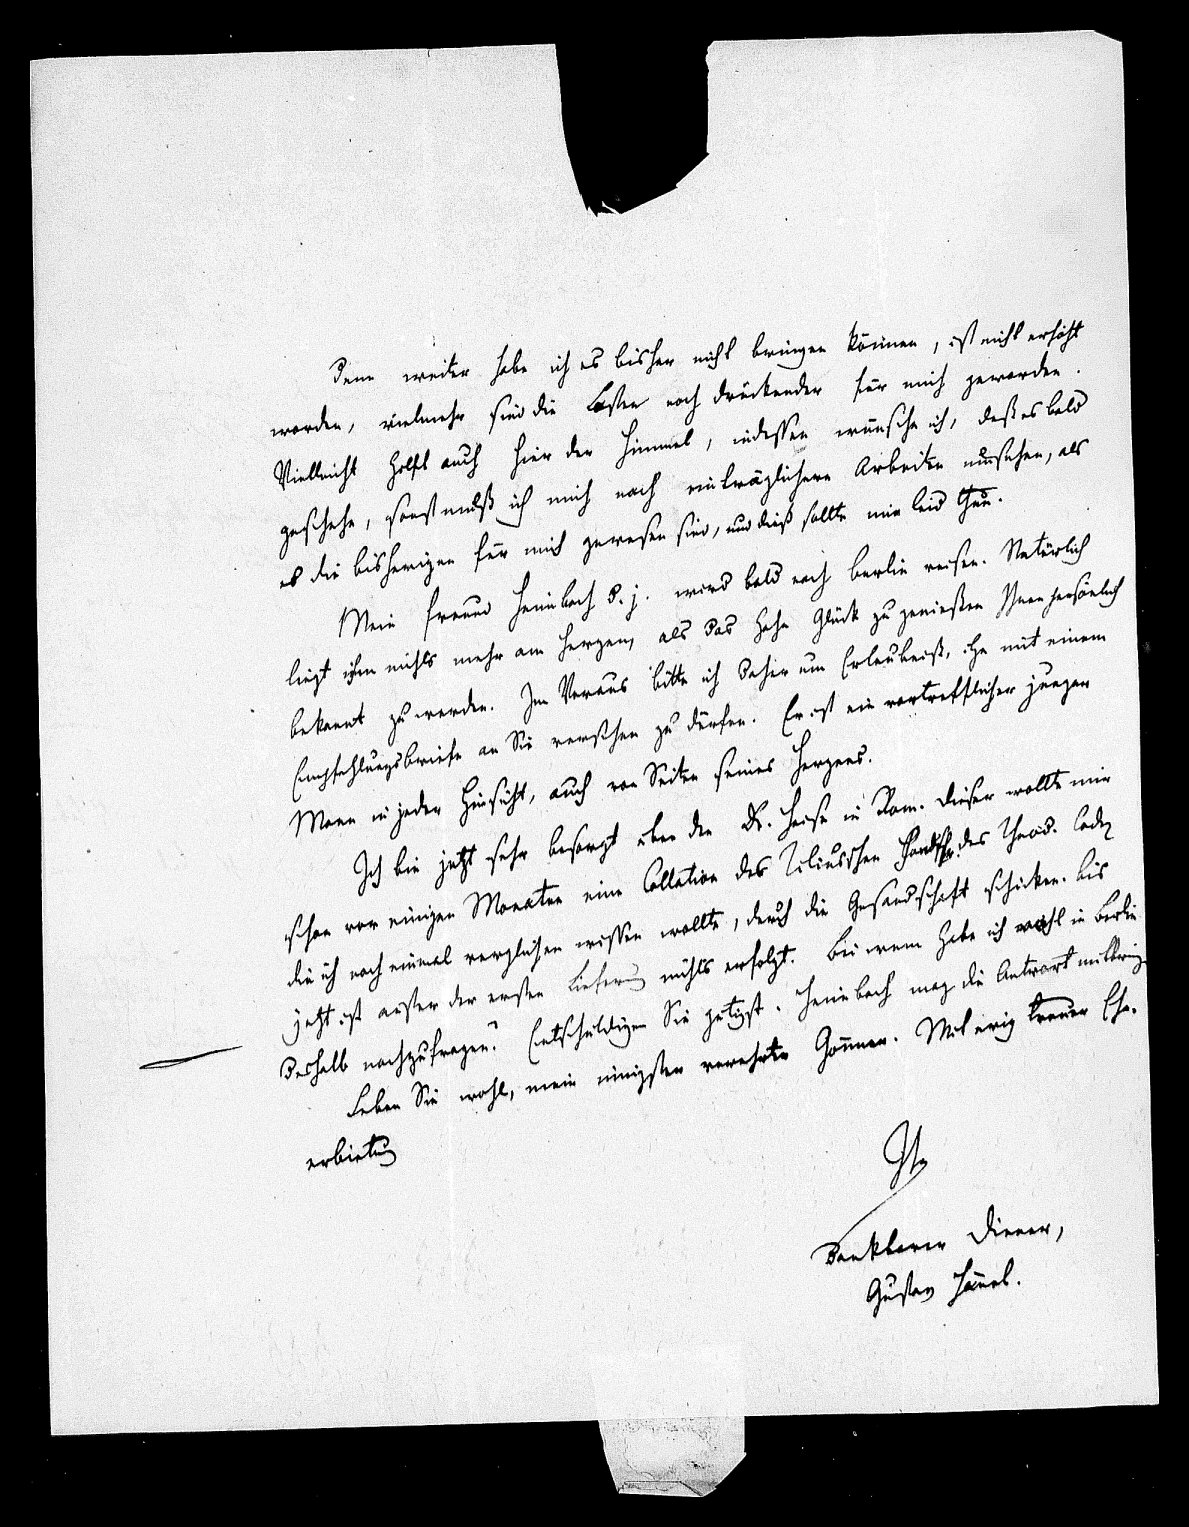 Denn weiter habe ich es bisher nicht bringen können, ist nicht erhöht
worden, vielmehr sind die Lasten noch drückender für mich geworden.
Vielleicht hilft auch hier der Himmel, indessen wünsche ich, daß es bald
geschehe, sonst muß ich mich nach einträglichern Arbeiten umsehen, als
es die bisherigen für mich gewesen sind, und dieß sollte mir leid thun.
Mein Freund Heimbach d. j. wird bald nach Berlin reisen. Natürlich
liegt ihm nichts mehr am Herzen, als das hohe Glück zu genießen Ihnen persönlich
bekannt zu werden. Im Voraus bitte ich daher um Erlaubniß, ihn mit einem
Empfehlungsbriefe an Sie versehen zu dürfen. Er ist ein vortrefflicher junger
Mann in jeder Hinsicht, auch von Seiten seines Herzens.
Ich bin jetzt sehr besorgt über den Dr. Heise in Rom. Dieser wollte mir
schon vor einigen Monaten eine Collation des Tiliusschen Handschr. des Theod. Codex
die ich noch einmal verglichen wissen wollte, durch die Gesandschaft schicken. Bis
jetzt ist außer der ersten Lieferung nichts erfolgt. Bei wem habe ich wohl in Berlin
deshalb nachzufragen? Entschuldigen Sie gütigst. Heimbach mag die Antwort mitbringen
Leben Sie wohl, mein innigsten verehrter Gönner. Mit ewig treuer Ehr-
erbietung
Ihr
dankbarer Diener,
Gustav Hänel.